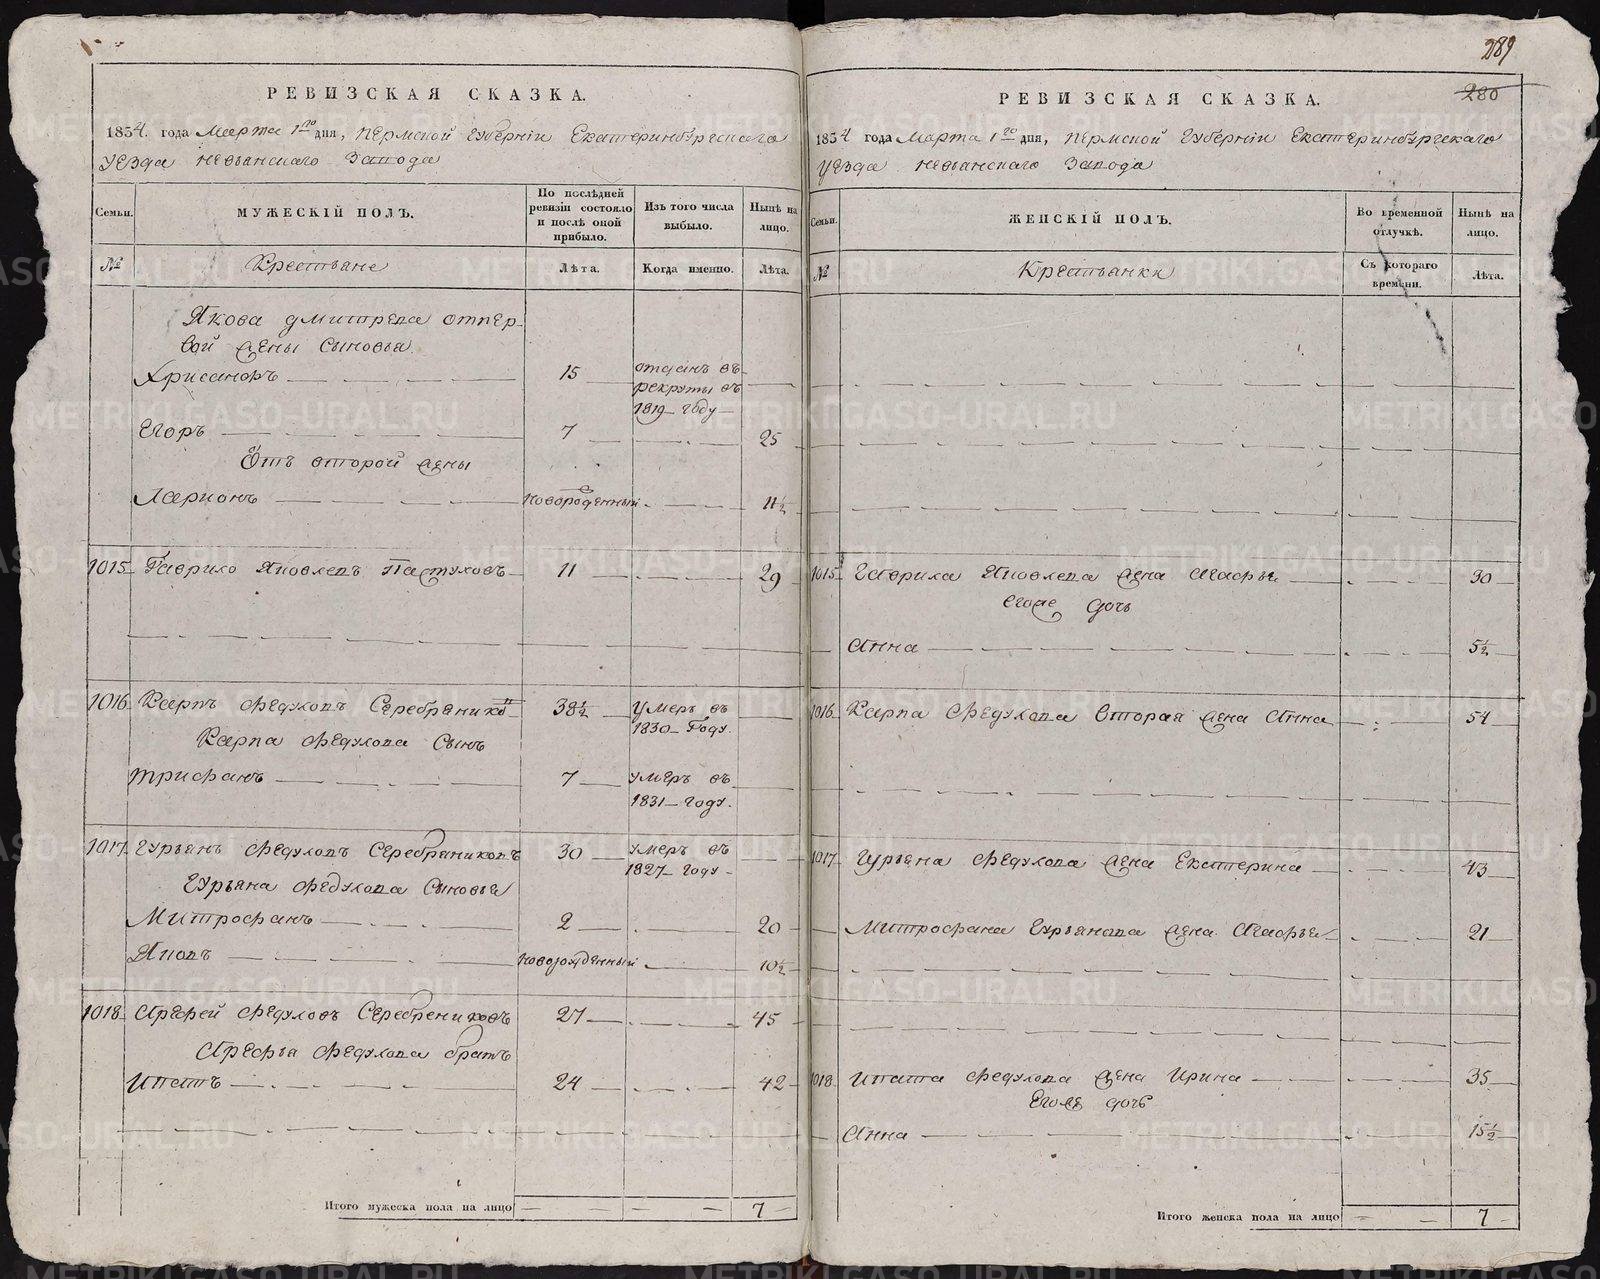 РЕВИЗСКАЯ СКАЗКА.
1834. года Марта 1го дня, Пермской Губерніи Екатеринбургскаго
уезда Невьянскаго Завода
Семьи.
МУЖЕСКІЙ ПОЛЪ.
По послѣдней ревизіи состояло и послѣ оной прибыло.
Изъ того числа выбыло.
Нынѣ на лицо.
№
Крестьяне
Лѣта.
Когда именно.
Лѣта.
Якова Дмитрева отпер-
вой жены сыновья
Хрисанфъ 15 отданъ въ
рекруты въ
1819 году
Егоръ 7 25
Отъ второй жены
Ларионъ новорожденный 11½
1015 Гаврило Яковлевъ Пастуховъ 11 29
1016 Карпъ Федуловъ Серебряниковъ 38½ умеръ въ
1830 Году.
Карпа Федулова Сынъ
Трифанъ 7 умеръ въ
1831 году.
1017 Гурьянъ Федуловъ Серебряниковъ 30 умеръ въ
1827 году
Гурьяна Федулова Сыновья
Митрофанъ 2 20
Яковъ новорожденный 10½
1018 Арефей Федуловъ Серебрениковъ 27 45
Арефья Федулова братъ
Ипатъ 24 42
Итого мужеска пола на лицо 7
289
280
РЕВИЗСКАЯ СКАЗКА.
1834 года Марта 1го дня, Пермской Губерніи Екатеринбургскаго
уезда Невьянскаго Завода
Семьи.
ЖЕНСКІЙ ПОЛЪ.
Во временной отлучкѣ.
Нынѣ на лицо.
№
Крестьянки
Съ котораго времени.
Лѣта.
1015 Гаврила Яковлева жена Агафья 30
Егоже дочь
Анна 5½
1016 Карпа Федулова вторая жена Анна 54
1017 Гурьяна Федулова жена Екатерина 43
Митрофана Гурьянова жена Агафья 21
1018 Ипата Федулова жена Ирина 35
Егоже дочь
Анна 15½
Итого женска пола на лицо 7
METRIKI.GASO-URAL.RU